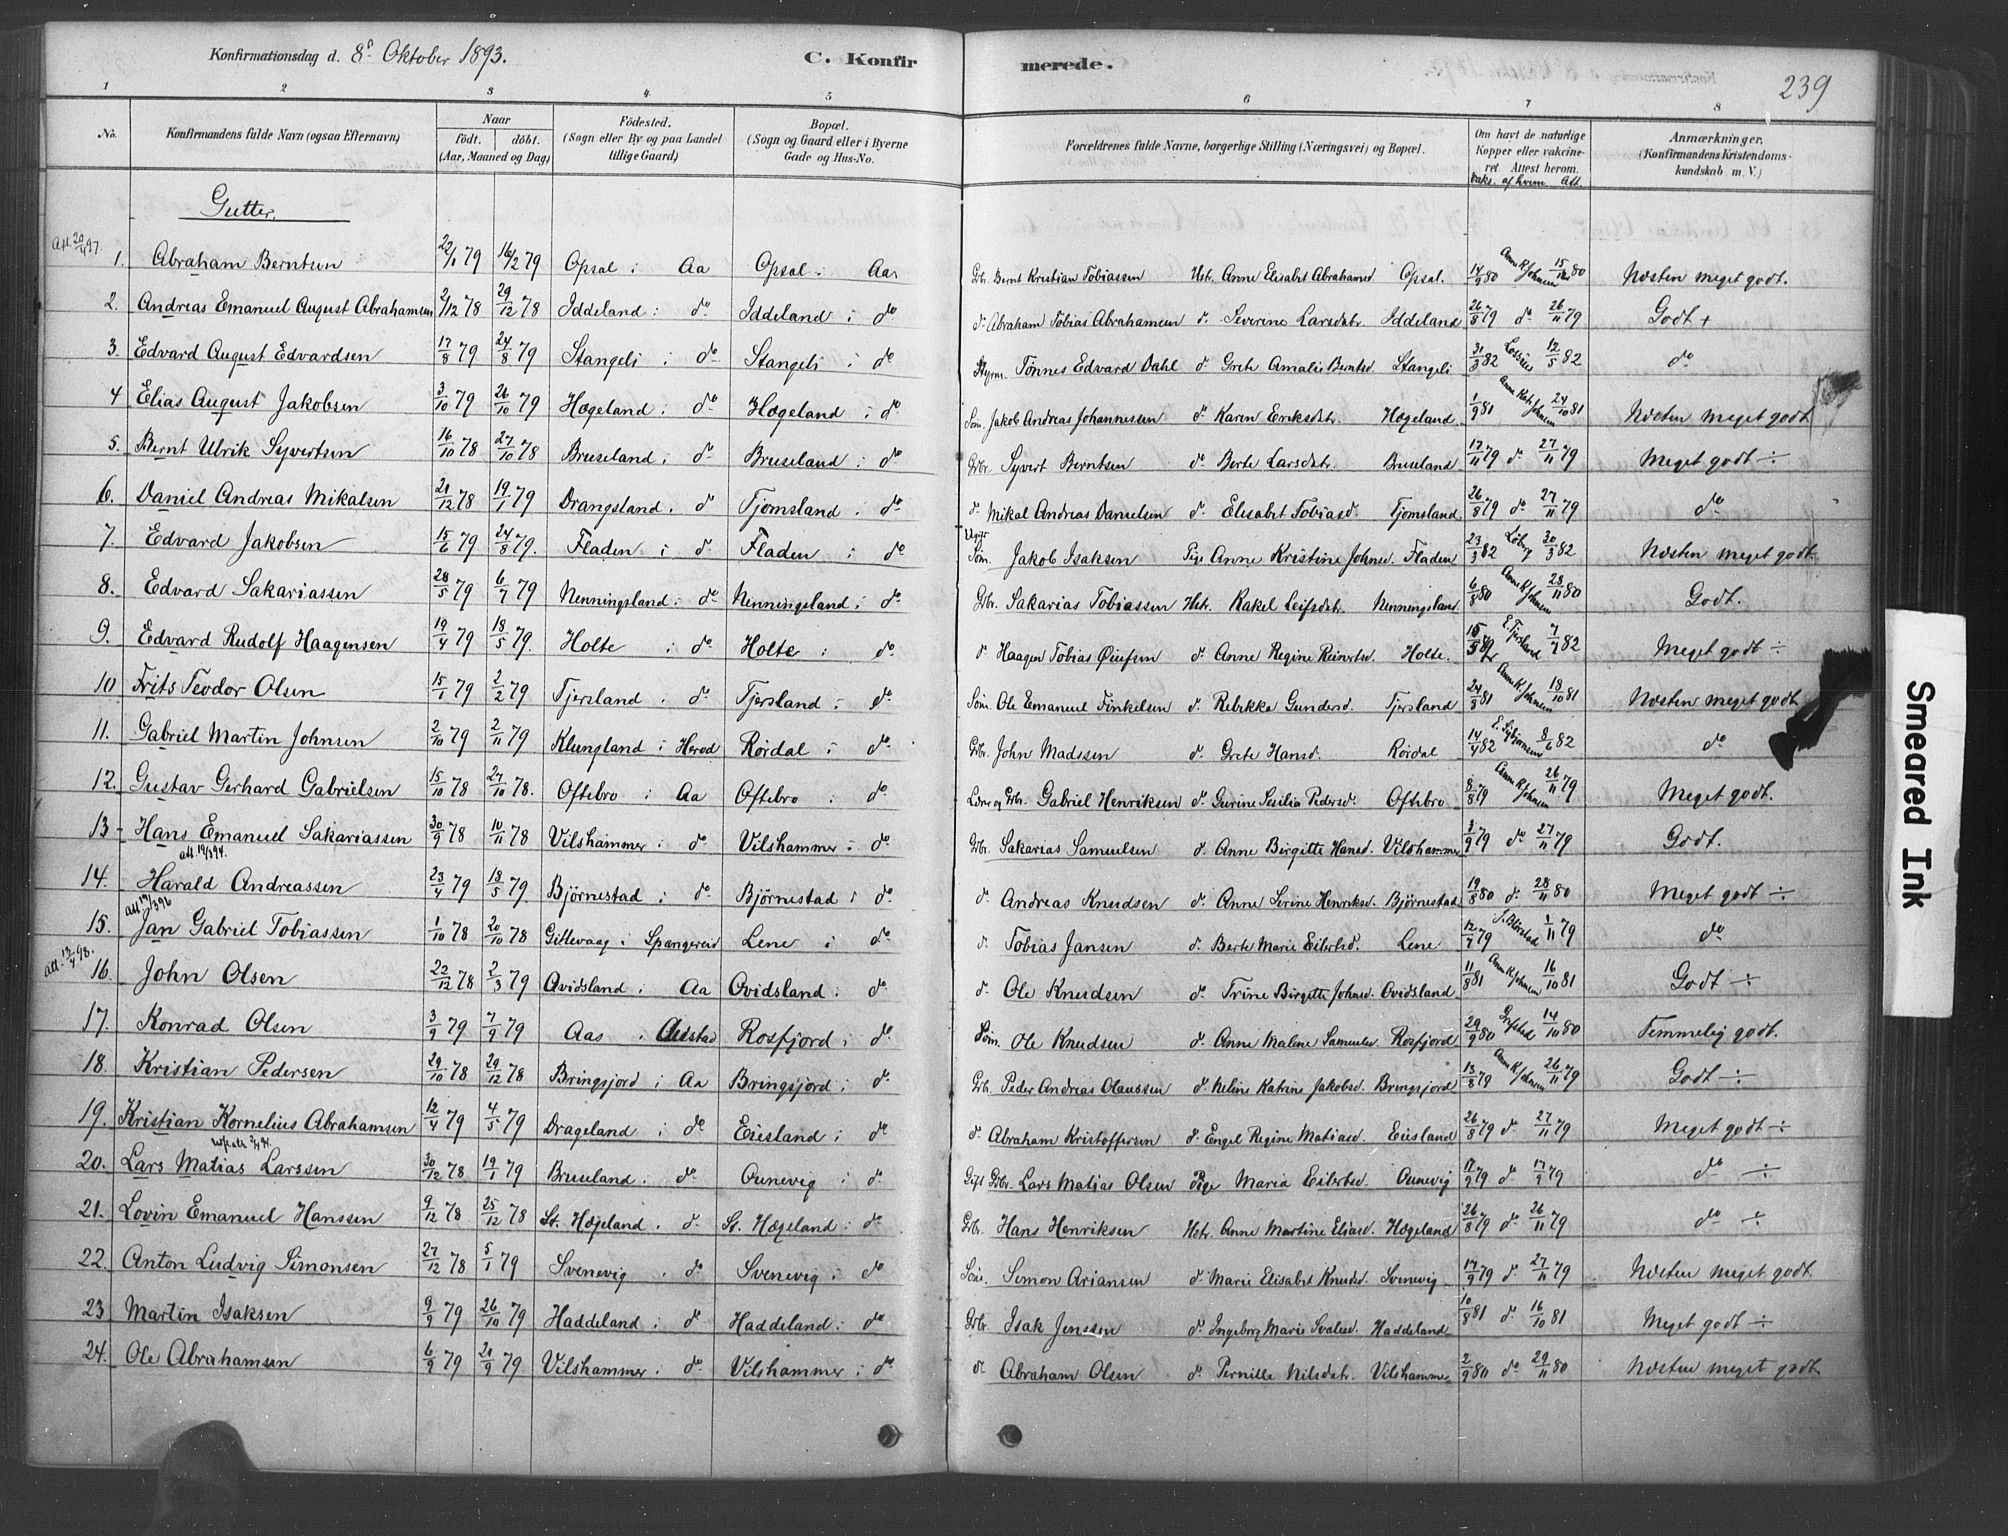 Konfirmationsdag d. 8de Oktober 1893. C. Konfir merede. 239
1 2 3 4 5 6 7 8
No. Konfirmandens fulde Navn (ogsaa Efternavn) Naar født. døbt. (Aar, Maaned og Dag) Fødested. (Sogn eller By og paa Landet tillige Gaard) Bopæl. (Sogn og Gaard eller i Byerne Gade og Hus-No. Forældrenes fulde Navne, borgerlige Stilling (Næringsvei) og Bopæl. Om havt de naturlige Kopper eller vakcineret. Attest herom. Vaks. af hvem Att. Anmærkninger. (Konfirmandens Kristendomskundskab m. V.)
Gutter.
Att. 20/4 97.
1. Abraham Berntsen 22/1 79 16/2 79 Opsal i Aa Opsal i Aa Gbr. Bernt Kristian Tobiassen Hst. Anne Elisabet Abrahamsd. Opsal. 14/9 80 Anne K. Johnsen 15/12 80 Næsten meget godt.
2. Andreas Emanuel August Abrahamsen 2/12 78 29/12 78 Iddeland i do Iddeland i do do Abraham Tobias Abrahamsen do Severine Larsdtr. Iddeland 26/8 79 do 26/11 79 Godt +
3. Edvard August Edvardsen 17/8 79 24/8 79 Stangeli i do Stangeli i do Styrm. Tønnes Edvard Dahl do Grete Amalie Berntsd. Stangeli 31/3 82 12/5 82 do
4 Elias August Jakobsen 3/10 79 26/10 79 Hægeland i do Hægeland i do Søm. Jakob Andreas Johannessen do Karen Eriksdtr. Hægeland 1/9 81 Anne Katr. Johnsen 24/10 81 Næsten meget godt
5. Bernt Ulrik Syvertsen 16/10 78 27/10 78 Bruseland i do Bruseland i do Gbr. Syvert Berntsen do Berte Larsdtr. Bruseland 17/11 79 do 27/11 79 Meget godt ÷
6. Daniel Andreas Mikalsen 21/12 78 19/1 79 Drangsland i do Tjomsland i do do Mikal Andreas Danielsen do Elisabet Tobiasd. Tjomsland 26/8 79 do 27/11 79 do
7. Edvard Jakobsen 15/6 79 24/8 79. Fladen i do Fladen i do Ugift Søm. Jakob Isaksen Pige Anne Kristine Johnsd. Fladen 23/3 82 Løberg 30/3 82 Næsten meget godt
8. Edvard Sakariassen 28/5 79 6/7 79 Nenningsland i do Nenningsland i do Gbr. Sakarias Tobiassen Hst. Rakel Leifsdtr. Nenningsland 6/8 80 Anne K. Johnsen 28/11 80 Godt.
9. Edvard Rudolf Haagensen 19/4 79 18/5 79. Holte i do Holte i do do Haagen Tobias Øiufsen do Anne Regine Reinertsd. Holte. E. Tjersland 7/7 82 Meget godt ÷
10 Frits Teodor Olsen 15/1 79 2/2 79 Tjersland i do Tjersland i do Søm. Ole Emanuel Finkelsen do Rebekka Gundersd. Tjersland 24/8 81 Anne K. Johnsen 18/10 81 Næsten meget godt
11. Gabriel Martin Johnsen 2/10 79 2/11 79 Klungland i Herad Rørdal i do Gbr. John Madssen do Grete Hansd. Rørdal 14/4 82 8/6 82 do
12. Gustav Gerhard Gabrielsen 15/10 78 27/10 78. Oftebro i Aa Oftebro i do Løne og Gbr. Gabriel Henriksen do Gurine Sesilia Pedersd. Oftebro 8/8 79 Anne K. Johnsen 26/11 79 Meget godt.
13 Hans Emanuel Sakariassen 30/9 78 10/11 78 Vilshammer i do Vilshammer i do Gbr. Sakarias Samuelsen do Anne Birgitte Hansd. Vilshammer 2/9 79 do 27/11 79 Godt.
att. 19/3 94.
14. Harald Andreassen 23/4 79 18/5 79. Bjørnestad i do Bjørnestad i do do Andreas Knudsen do Anne Serine Henriksd. Bjørnestad 19/8 80 do 28/11 80 Meget godt ÷
att 19/3 96
15. Jan Gabriel Tobiassen 1/10 78 20/10 78 Gillevaag i Spangereid Lene i do do Tobias Jansen do Berte Marie Eilertsd. Lene 12/7 79 1/11 79 do
att. 13/4 98.
16. John Olsen 22/12 78 2/3 79 Ovidsland i Aa Ovidsland i do do Ole Knudsen do Trine Birgitte Johnsd. Ovidsland 11/8 81 Anne K. Johnsen 16/10 81 Godt ÷
17. Konrad Olsen 3/9 79 7/9 79 Aas i Austad Rosfjord i do Søm. Ole Knudsen do Anne Malene Samuelsd. Rosfjord 29/9 80 Grefstad 14/10 80 Temmelig godt.
18. Kristian Pedersen 29/10 78 29/12 78 Bringsjord i Aa Bringsjord i do Gbr. Peder Andreas Olaussen do Neline Katrine Jakobsd. Bringsjord 13/8 79 Anne K. Johnsen 26/11 79 Godt ÷
19. Kristian Kornelius Abrahamsen 12/4 79 4/5 79 Drageland i do Eiesland i do do Abraham Kristoffersen do Engel Regine Matiasd. Eiesland 26/8 79 do 27/11 79 Meget godt ÷
20. Lars Matias Larssen 30/12 78 19/1 79 Bruseland i do Ounevig i do Gift Gbr. Lars Matias Olsen Pige Maria Eilertsd. Ounevig 17/9 79 do 17/9 79 do ÷
21. Lovin Emanuel Hanssen 9/12 78 25/12 78 St. Hægeland i do St. Hægeland i do Gbr. Hans Henriksen Hst. Anne Martine Eliasd. Hægeland 26/8 79 do 26/11 79 do ÷
22. Anton Ludvig Simonsen 27/12 78 5/1 79 Svenevig i do Svenevig i do Søm. Simon Ariansen do Marie Elisabet Knudsd. Svenevig 17/9 79 do 27/11 79 Næsten meget godt.
23 Martin Isaksen 9/9 79 26/10 79 Haddeland i do Haddeland i do Gbr. Isak Jenssen do Ingeborg Marie Svalesd. Haddeland 10/8 81 do 16/10 81 Meget godt ÷
24. Ole Abrahamsen 6/9 79 21/9 79 Vilshammer i do Vilshammer i do do Abraham Olsen do Pernille Nilsdtr. Vilshammer 2/9 80 do 29/11 80 Næsten meget godt
Smeared Ink